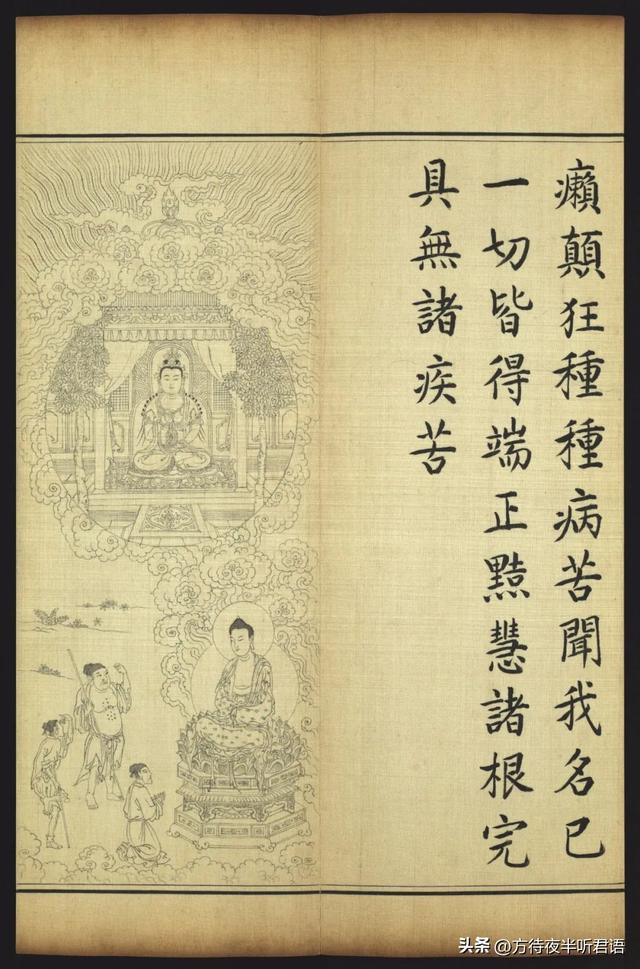 癩顛狂種種病苦聞我名已
一切皆得端正黠慧諸根完
具無諸疾苦
头条 @方待夜半听君语